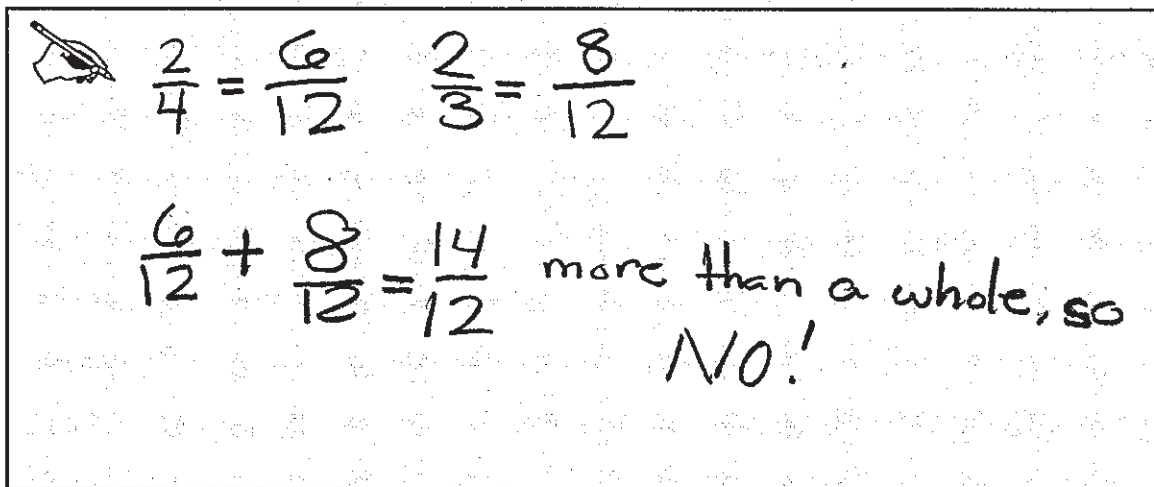 2/4 = 6/12 2/3 = 8/12
6/12 + 8/12 = 14/12 more than a whole, so
NO!